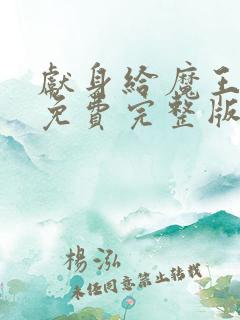 獻身給魔王
免費完整版
楊泓
未經同意禁止轉載